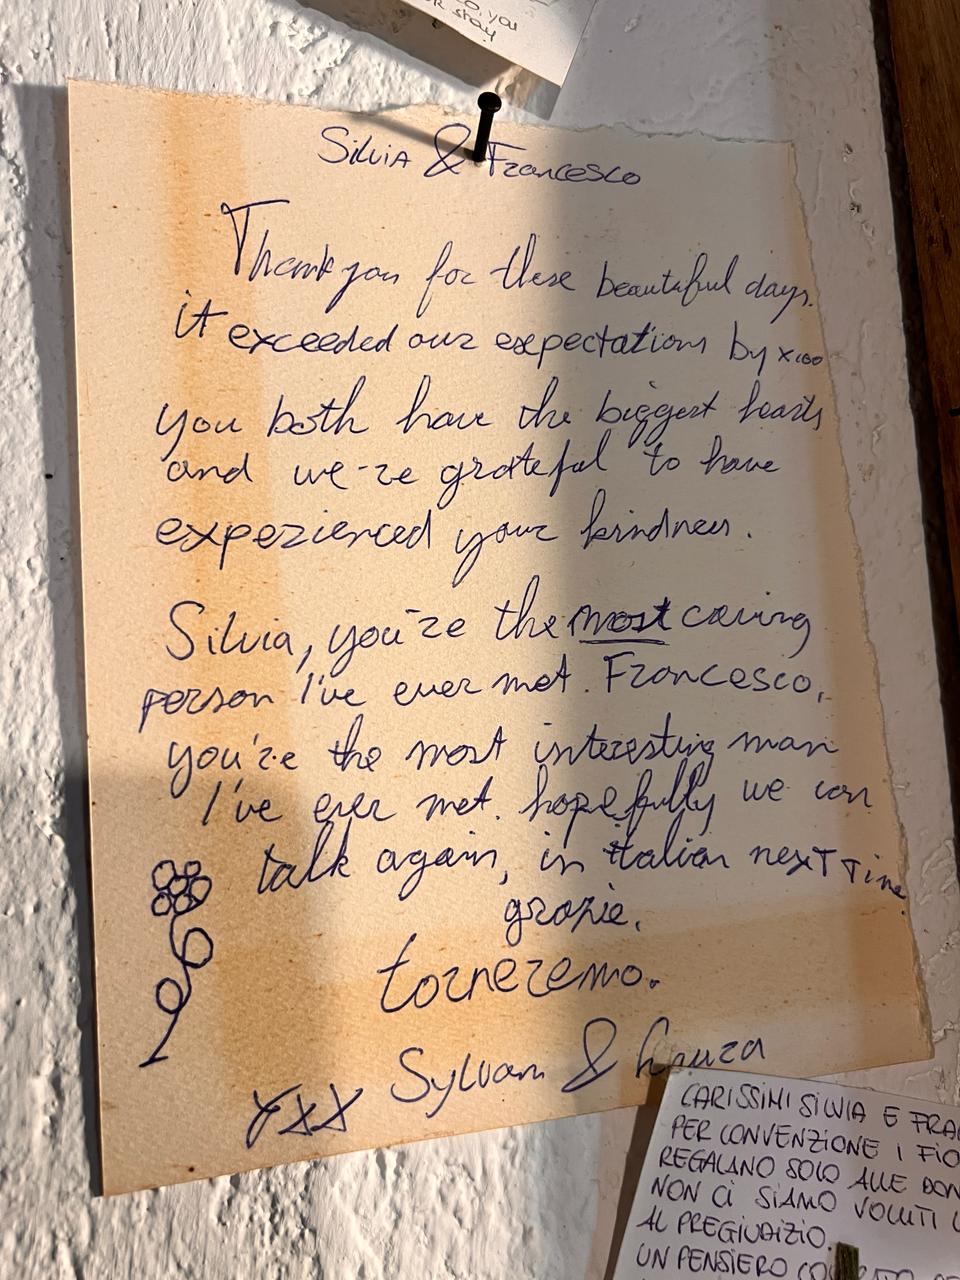 you
stay
Silvia & Francesco
Thank you for these beautiful days.
it exceeded our expectations by x100
you both have the biggest hearts
and we-re grateful to have
experienced your kindness.
Silvia, you're the most caring
person I've ever met. Francesco,
you're the most interesting man
I've ever met. hopefully we can
talk again, in italian next time.
grazie.
torneremo.
Sylvain &
xxx
CARISSIMI SILVIA E
PER CONVENZIONE I
REGALANO SOLO ALLE
NON CI SIAMO VOLUTI
AL PREGIUDIZIO.
UN PENSIERO